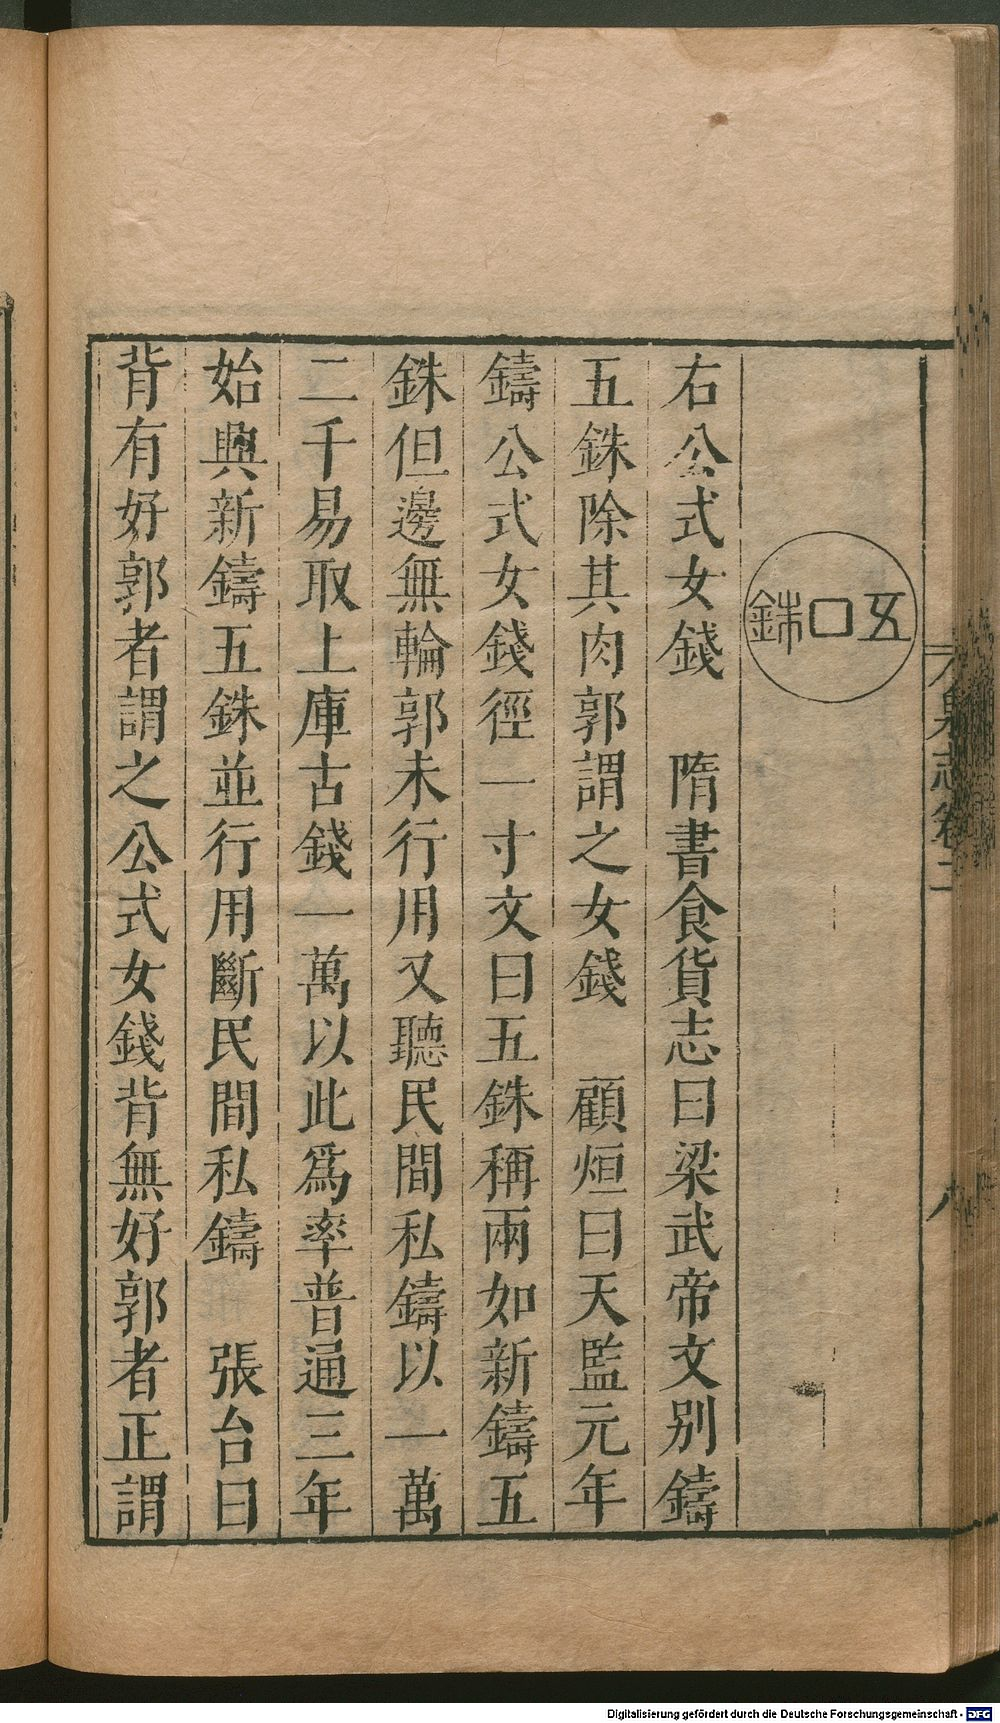 泉志卷二
五銖
右公式女錢　隋書食貨志曰梁武帝文别鑄
五銖除其肉郭謂之女錢　顧烜曰天監元年
鑄公式女錢徑一寸文曰五銖稱兩如新鑄五
銖但邊無輪郭未行用又聽民間私鑄以一萬
二千易取上庫古錢一萬以此爲率普通三年
始興新鑄五銖並行用斷民間私鑄　張台曰
背有好郭者謂之公式女錢背無好郭者正謂
Digitalisierung gefördert durch die Deutsche Forschungsgemeinschaft - DFG